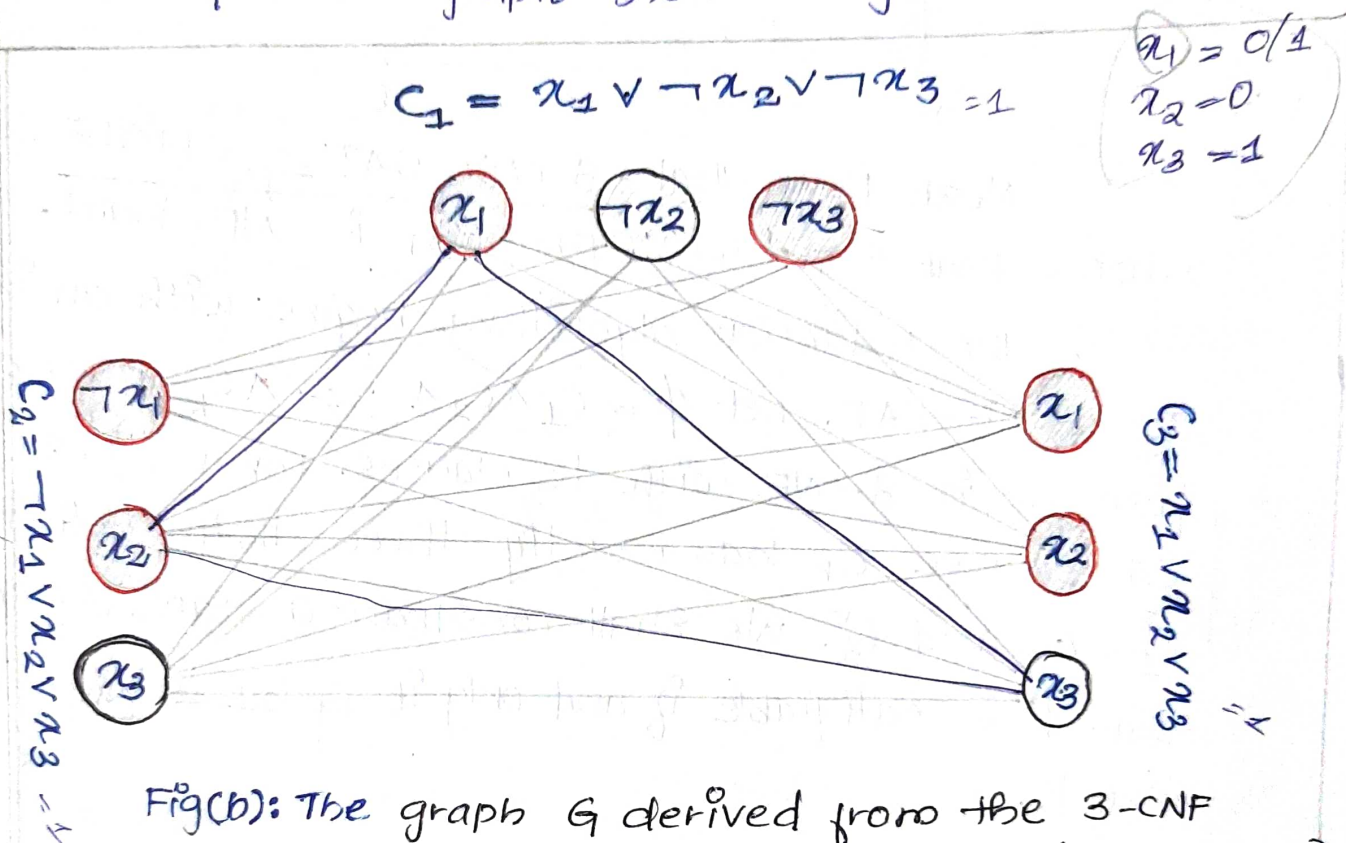 x₁ = 0/1
x₂ = 0
x₃ = 1
C₁ = x₁ ∨ ¬x₂ ∨ ¬x₃ = 1
x₁ ¬x₂ ¬x₃
¬x₁
x₂
x₃
C₂ = ¬x₁ ∨ x₂ ∨ x₃ = 1
x₁
x₂
x₃
C₃ = x₁ ∨ x₂ ∨ x₃ = 1
Fig(b): The graph G derived from the 3-CNF